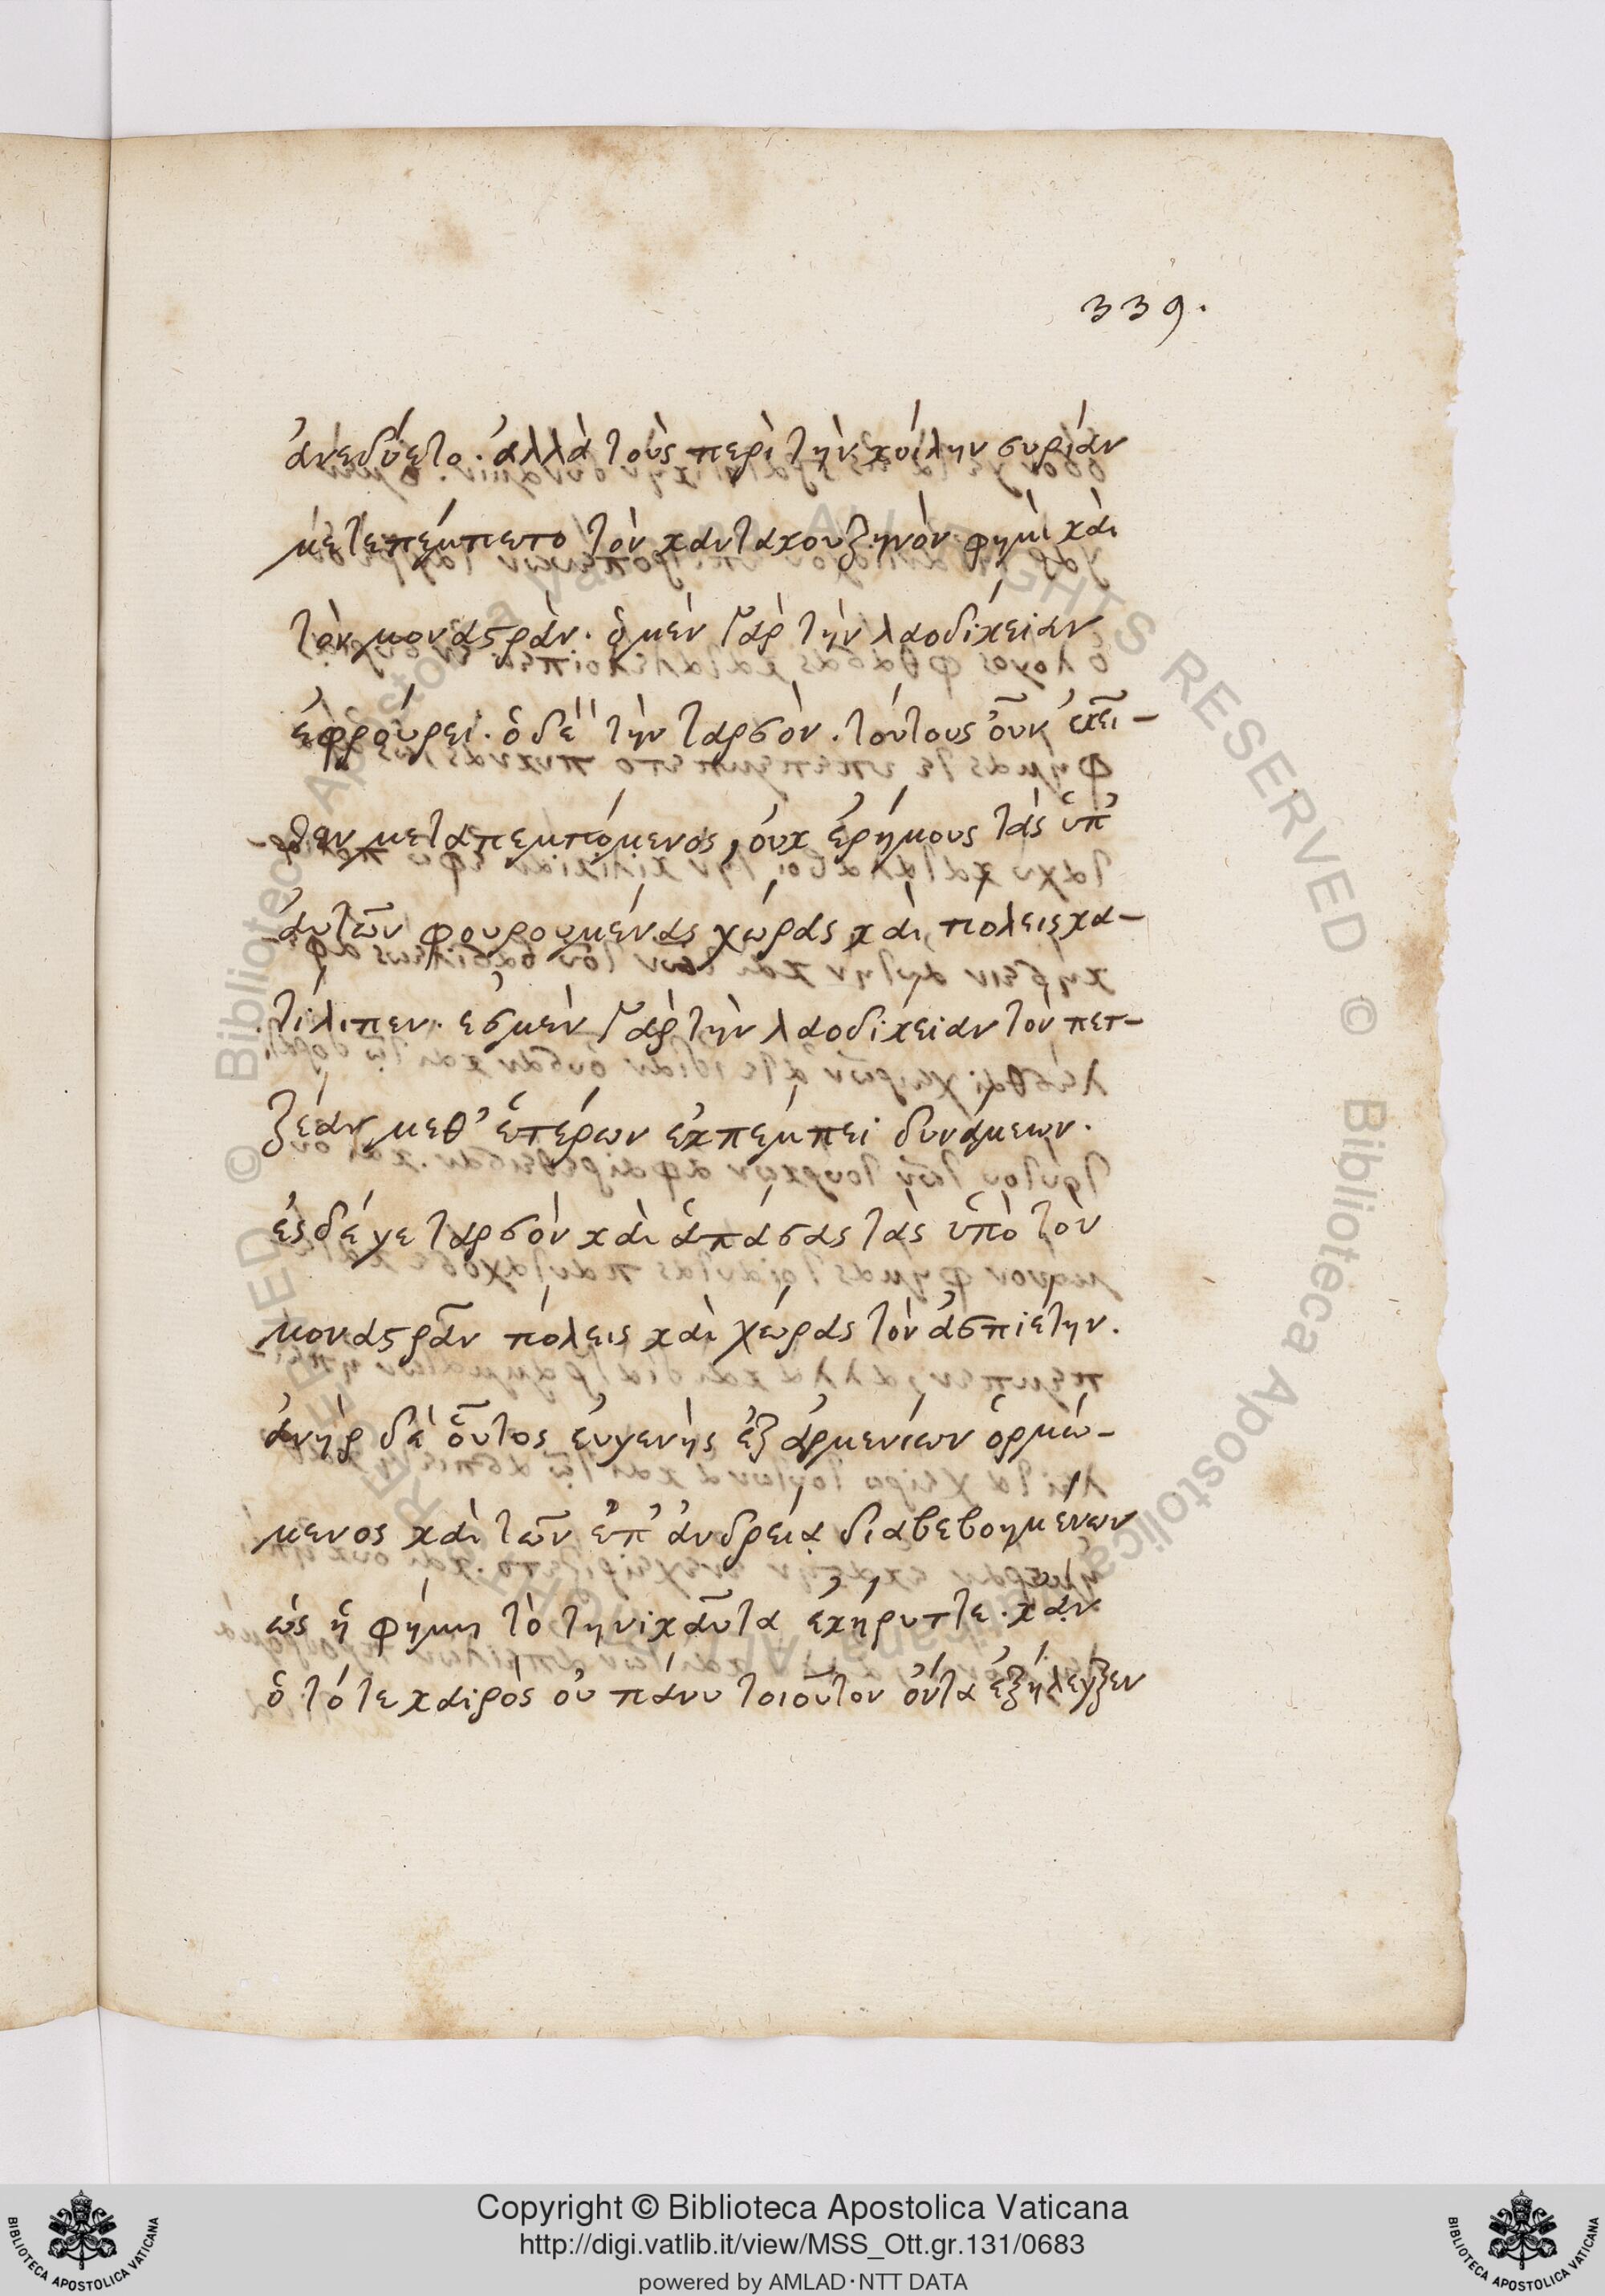 339.
ἀνεδύετο. ἀλλὰ τοὺς περὶ τὴν κοίλην συρίαν
μετεπέμπετο τὸν κανταχουζηνόν φημὶ καὶ
τὸν μοναστρὰν. ὁ μὲν γὰρ τὴν λαοδίκειαν
ἐφρούρει. ὁ δὲ τὴν ταρσὸν. τούτους οὖν κἀκεῖ-
θεν μεταπεμπόμενος, οὐκ ἐρήμους τὰς ὑπ'
ἀυτῶν φρουρουμένας χώρας καὶ πόλεις κα-
τέλιπεν. ἐς μὲν γὰρ τὴν λαοδίκειαν τὸν πετ-
ζέαν μεθ' ἑτέρων ἐκπέμπει δυνάμεων.
ἐς δέ γε ταρσὸν καὶ ἁπάσας τὰς ὑπὸ τὸν
μοναστρᾶν πόλεις καὶ χώρας τὸν ἀσπιέτην.
ἀνὴρ δὲ οὗτος ἐυγενὴς ἐξ ἀρμενίων ὁρμώ-
μενος καὶ τῶν ἐπ' ἀνδρείᾳ διαβεβοημένων
ὡς ἡ φήμη τὸ τηνικαῦτα ἐκήρυττε. κἂν
ὁ τότε καιρὸς οὐ πάνυ τοιοῦτον ὄντα ἐξήλεγξεν
© Biblioteca Apostolica Vaticana ALL RIGHTS RESERVED
Copyright © Biblioteca Apostolica Vaticana
http://digi.vatlib.it/view/MSS_Ott.gr.131/0683
powered by AMLAD·NTT DATA
BIBLIOTECA APOSTOLICA VATICANA
BIBLIOTECA APOSTOLICA VATICANA